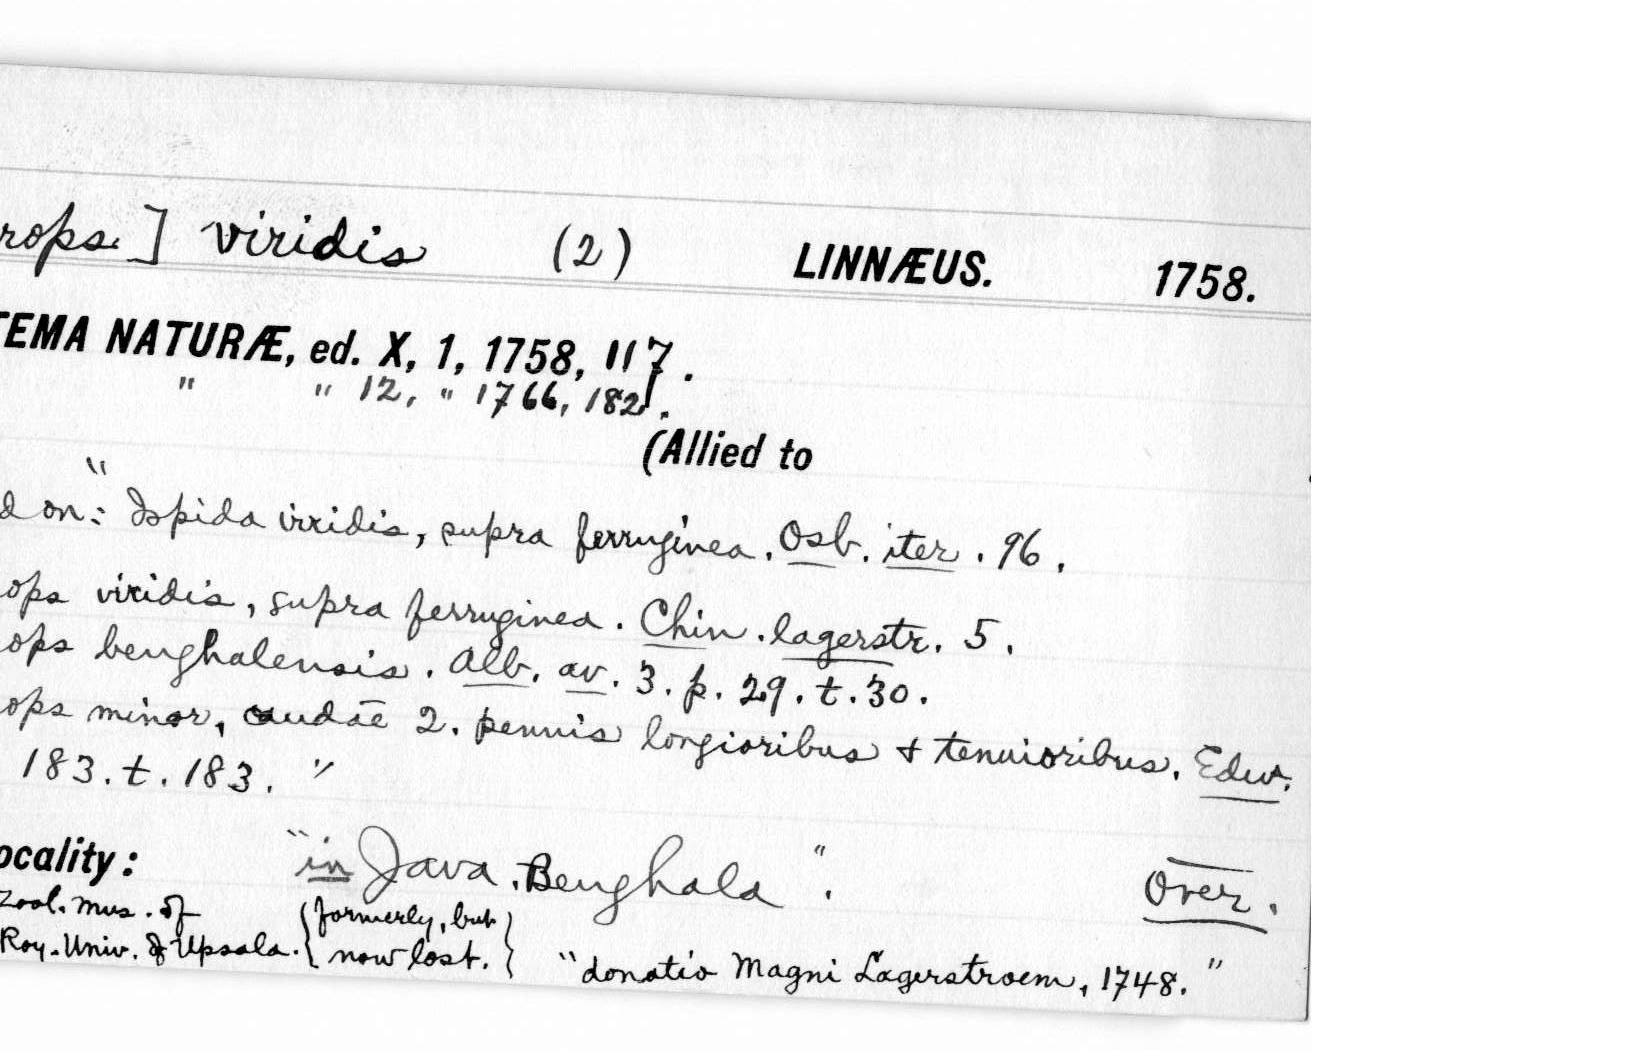 rops.] viridis (2) LINNÆUS. 1758.
TEMA NATURÆ, ed. X, 1, 1758, 117.
" " 12, " 1766, 182.
(Allied to
d on: "Ispida viridis, supra ferruginea. Osb. iter. 96.
ops viridis, supra ferruginea. Chin. lagerstr. 5.
ops benghalensis. Alb. av. 3. p. 29. t. 30.
ops minor, caudae 2. pennis longioribus & tenuioribus. Edw.
183. t. 183. "
ocality: "in Java. Benghala". Over.
Zool. Mus. of {formerly, but
Roy. Univ. of Upsala. now lost.} "donatio Magni Lagerstroem, 1748."